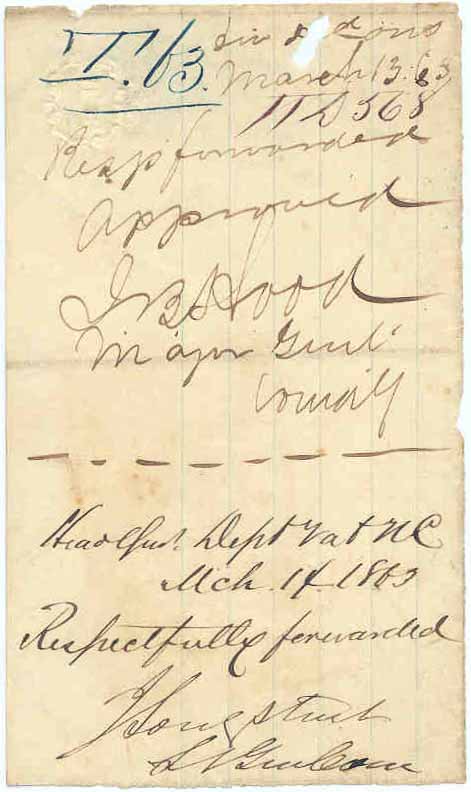 T. 63.
March 13. 63
568
Resp forwarded
Approved
J B Hood
Major Genl
Comdg
Headqurs. Dept Va & NC
Mch. 14. 1863
Respectfully forwarded
J Longstreet
Lt Genl Com